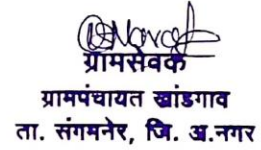 ग्रामसेवक
ग्रामपंचायत खांडगाव
ता. संगमनेर, जि. अ.नगर